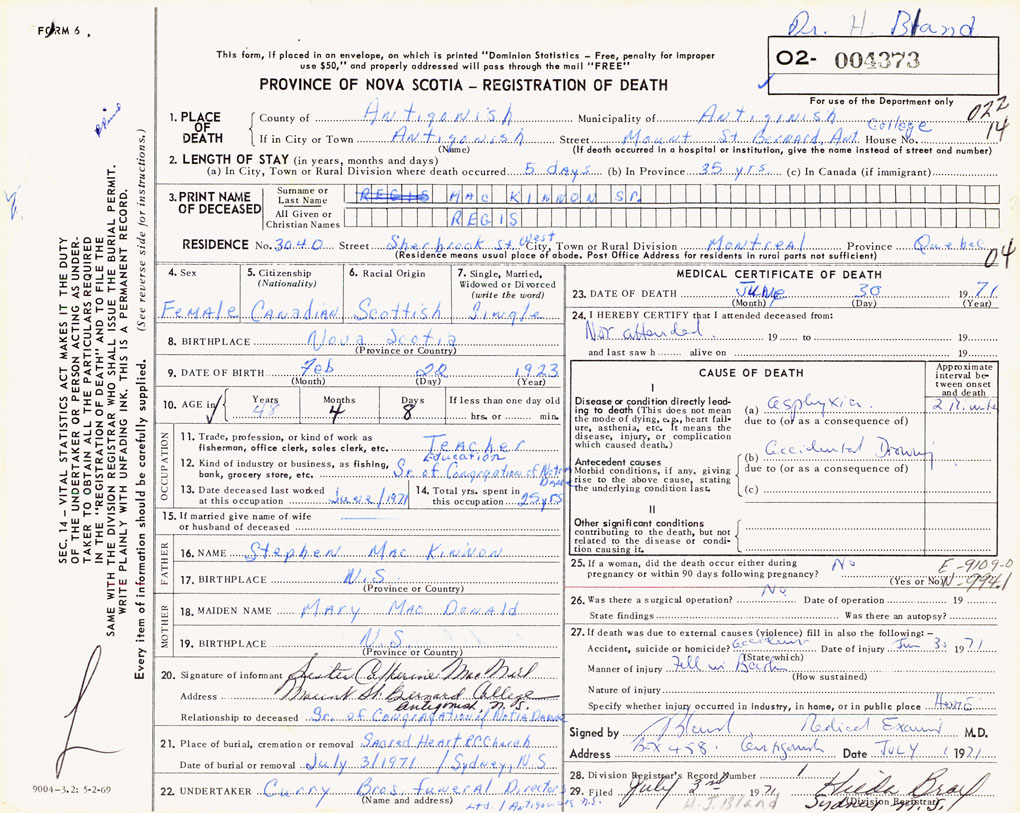 FORM 6.
Dr. H. Bland
This form, if placed in an envelope, on which is printed "Dominion Statistics – Free, penalty for improper
use $50," and properly addressed will pass through the mail "FREE"
02- 004373
PROVINCE OF NOVA SCOTIA – REGISTRATION OF DEATH
For use of the Department only
022
14
1. PLACE OF DEATH
County of Antigonish Municipality of Antiginish
If in City or Town Antigonish Street Mount St. Bernard, Ant. College House No.
(Name) (If death occurred in a hospital or institution, give the name instead of street and number)
2. LENGTH OF STAY (in years, months and days)
(a) In City, Town or Rural Division where death occurred 5 days (b) In Province 35 yrs. (c) In Canada (if immigrant)
3. PRINT NAME OF DECEASED
Surname or Last Name REGIS MAC KINNON SR.
All Given or Christian Names REGIS
RESIDENCE No. 3040 Street Sherbrook St. West City, Town or Rural Division Montreal Province Quebec
(Residence means usual place of abode. Post Office Address for residents in rural parts not sufficient)
04
4. Sex
Female
5. Citizenship (Nationality)
Canadian
6. Racial Origin
Scottish
7. Single, Married, Widowed or Divorced (write the word)
Single
8. BIRTHPLACE Nova Scotia
(Province or Country)
9. DATE OF BIRTH Feb 22 1923
(Month) (Day) (Year)
10. AGE in Years 48 Months 4 Days 8 If less than one day old
hrs. or min.
OCCUPATION
11. Trade, profession, or kind of work as fisherman, office clerk, sales clerk, etc. Teacher
12. Kind of industry or business, as fishing, bank, grocery store, etc. Education Sr. of Congregation of Notre Dame
13. Date deceased last worked at this occupation June/1971
14. Total yrs. spent in this occupation 25 yrs
15. If married give name of wife or husband of deceased
FATHER
16. NAME Stephen Mac Kinnon
17. BIRTHPLACE N.S.
(Province or Country)
MOTHER
18. MAIDEN NAME Mary Mac Donald
19. BIRTHPLACE N.S.
(Province or Country)
20. Signature of informant Sister Catherine Mac Neil
Address Mount St. Bernard College
Antigonish, N.S.
Relationship to deceased Sr. of Congregation of Notre Dame
21. Place of burial, cremation or removal Sacred Heart RC Church
Date of burial or removal July 3/1971 / Sydney, N.S.
22. UNDERTAKER Curry Bros. Funeral Directors
(Name and address) Ltd. / Antigonish N.S.
MEDICAL CERTIFICATE OF DEATH
23. DATE OF DEATH June 30 1971
(Month) (Day) (Year)
24. I HEREBY CERTIFY that I attended deceased from:
Not attended 19 to 19
and last saw h alive on 19
CAUSE OF DEATH
Approximate interval between onset and death
I
Disease or condition directly leading to death (This does not mean the mode of dying, e.g., heart failure, asthenia, etc. It means the disease, injury, or complication which caused death.)
(a) Asphyxia
due to (or as a consequence of)
Antecedent causes
Morbid conditions, if any, giving rise to the above cause, stating the underlying condition last.
(b) Accidental Drowning
due to (or as a consequence of)
(c)
II
Other significant conditions
contributing to the death, but not related to the disease or condition causing it.
25. If a woman, did the death occur either during pregnancy or within 90 days following pregnancy? No
(Yes or No)
E-9109-0
N-994.1
26. Was there a surgical operation? No Date of operation 19
State findings Was there an autopsy?
27. If death was due to external causes (violence) fill in also the following:–
Accident, suicide or homicide? Accident Date of injury Jun 30 1971
(State which)
Manner of injury Fell in Bath
(How sustained)
Nature of injury
Specify whether injury occurred in industry, in home, or in public place Home
Signed by Bland Medical Exam M.D.
Address Box 458. Antigonish Date JULY 1 1971
28. Division Registrar's Record Number 1
29. Filed July 3rd 1971
H. J. Bland
(Division Registrar)
SEC. 14 – VITAL STATISTICS ACT MAKES IT THE DUTY
OF THE UNDERTAKER OR PERSON ACTING AS UNDERTAKER TO OBTAIN ALL THE PARTICULARS REQUIRED
IN THE "REGISTRATION OF DEATH" AND TO FILE THE
SAME WITH THE DIVISION REGISTRAR WHO SHALL ISSUE THE BURIAL PERMIT.
WRITE PLAINLY WITH UNFADING INK. THIS IS A PERMANENT RECORD.
Every item of information should be carefully supplied. (See reverse side for instructions.)
9004-3.2: 5-2-69